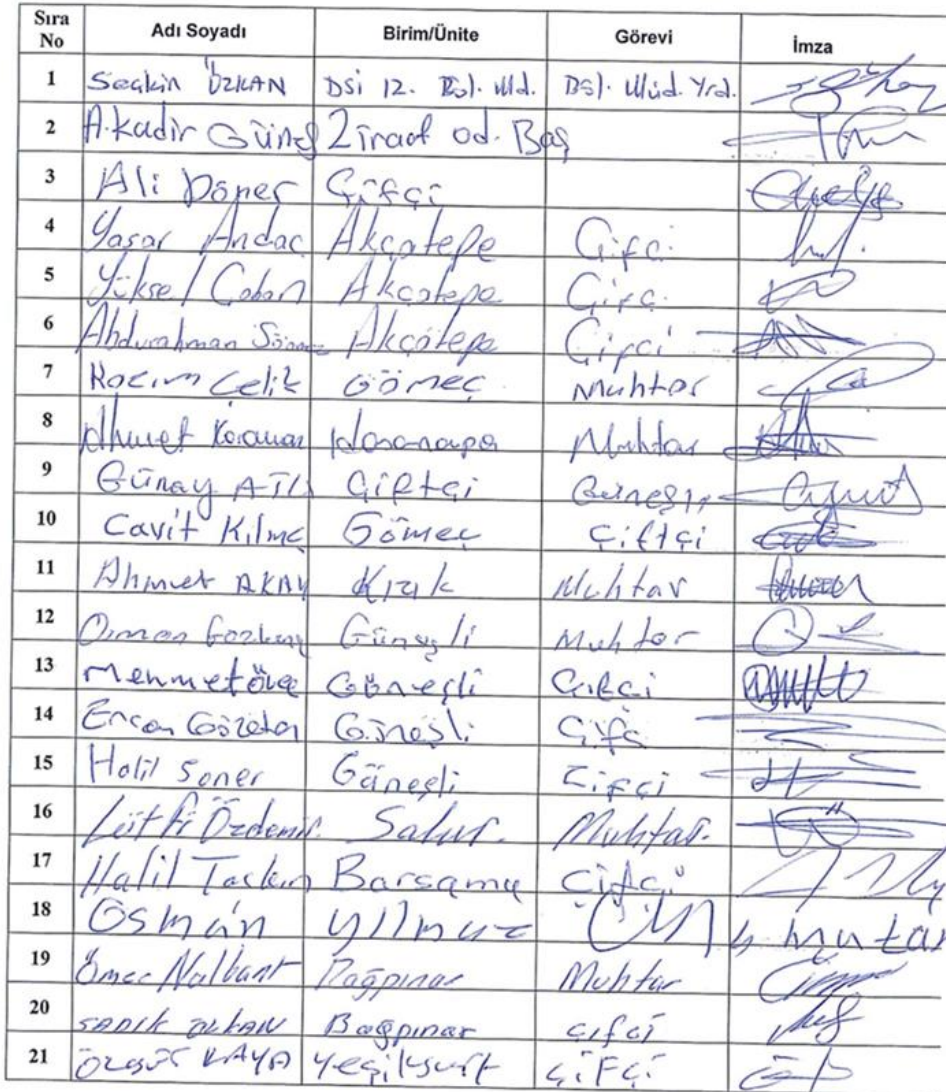 Sıra No Adı Soyadı Birim/Ünite Görevi İmza
1 Seçkin ÖZKAN DSİ 12. Böl. Md. Böl. Müd. Yrd.
2 A.Kadir Güneş Ziraat od. Baş
3 Ali Döner Çifçi
4 Yaşar Andaç Akçatepe Çifçi
5 Yüksel Çoban Akçatepe Çifçi
6 Abdurahman Akçatepe Çifçi
7 Kazım Çelik Gömeç Muhtar
8 Ahmet Muhtar
9 Günay ATLI Çiftçi Güneşli
10 Cavit Kılınç Gömeç Çiftçi
11 Ahmet AKAY Kızık Muhtar
12 Osman Güneşli Muhtar
13 Mehmet Güneşli Çifçi
14 Ercan Güneşli Çifç
15 Halil Soner Güneşli Çifçi
16 Lütfi Özdemir Salur Muhtar
17 Halil Taşkın Barsama Çifçi
18 Osman yılmaz mutar
19 Ömer Nalbant Bağpınar Muhtar
20 SADIK Bağpınar Çifçi
21 ÖZGÜR KAYA Yeşilyurt Çifçi